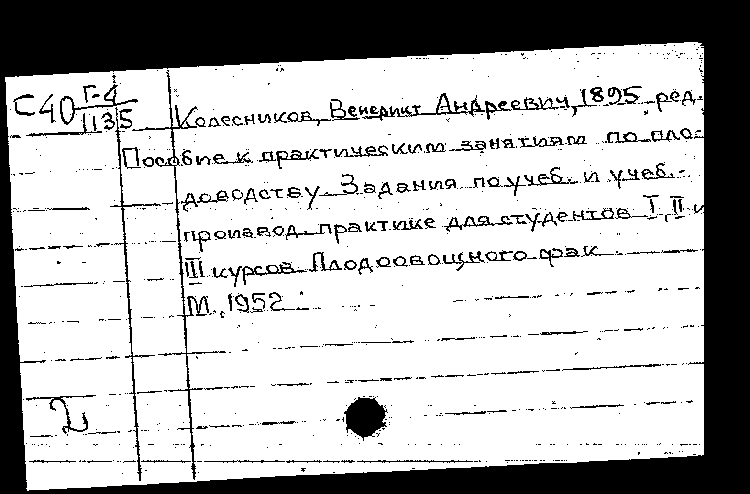 С40 Г-4
1135
Колесников, Венедикт Андреевич, 1895 ред.
Пособие к практическим занятиям по пло-
доводству. Задания по учеб. и учеб.-
производ. практике для студентов I, II и
III курсов Плодоовощного фак.
М., 1952.
2